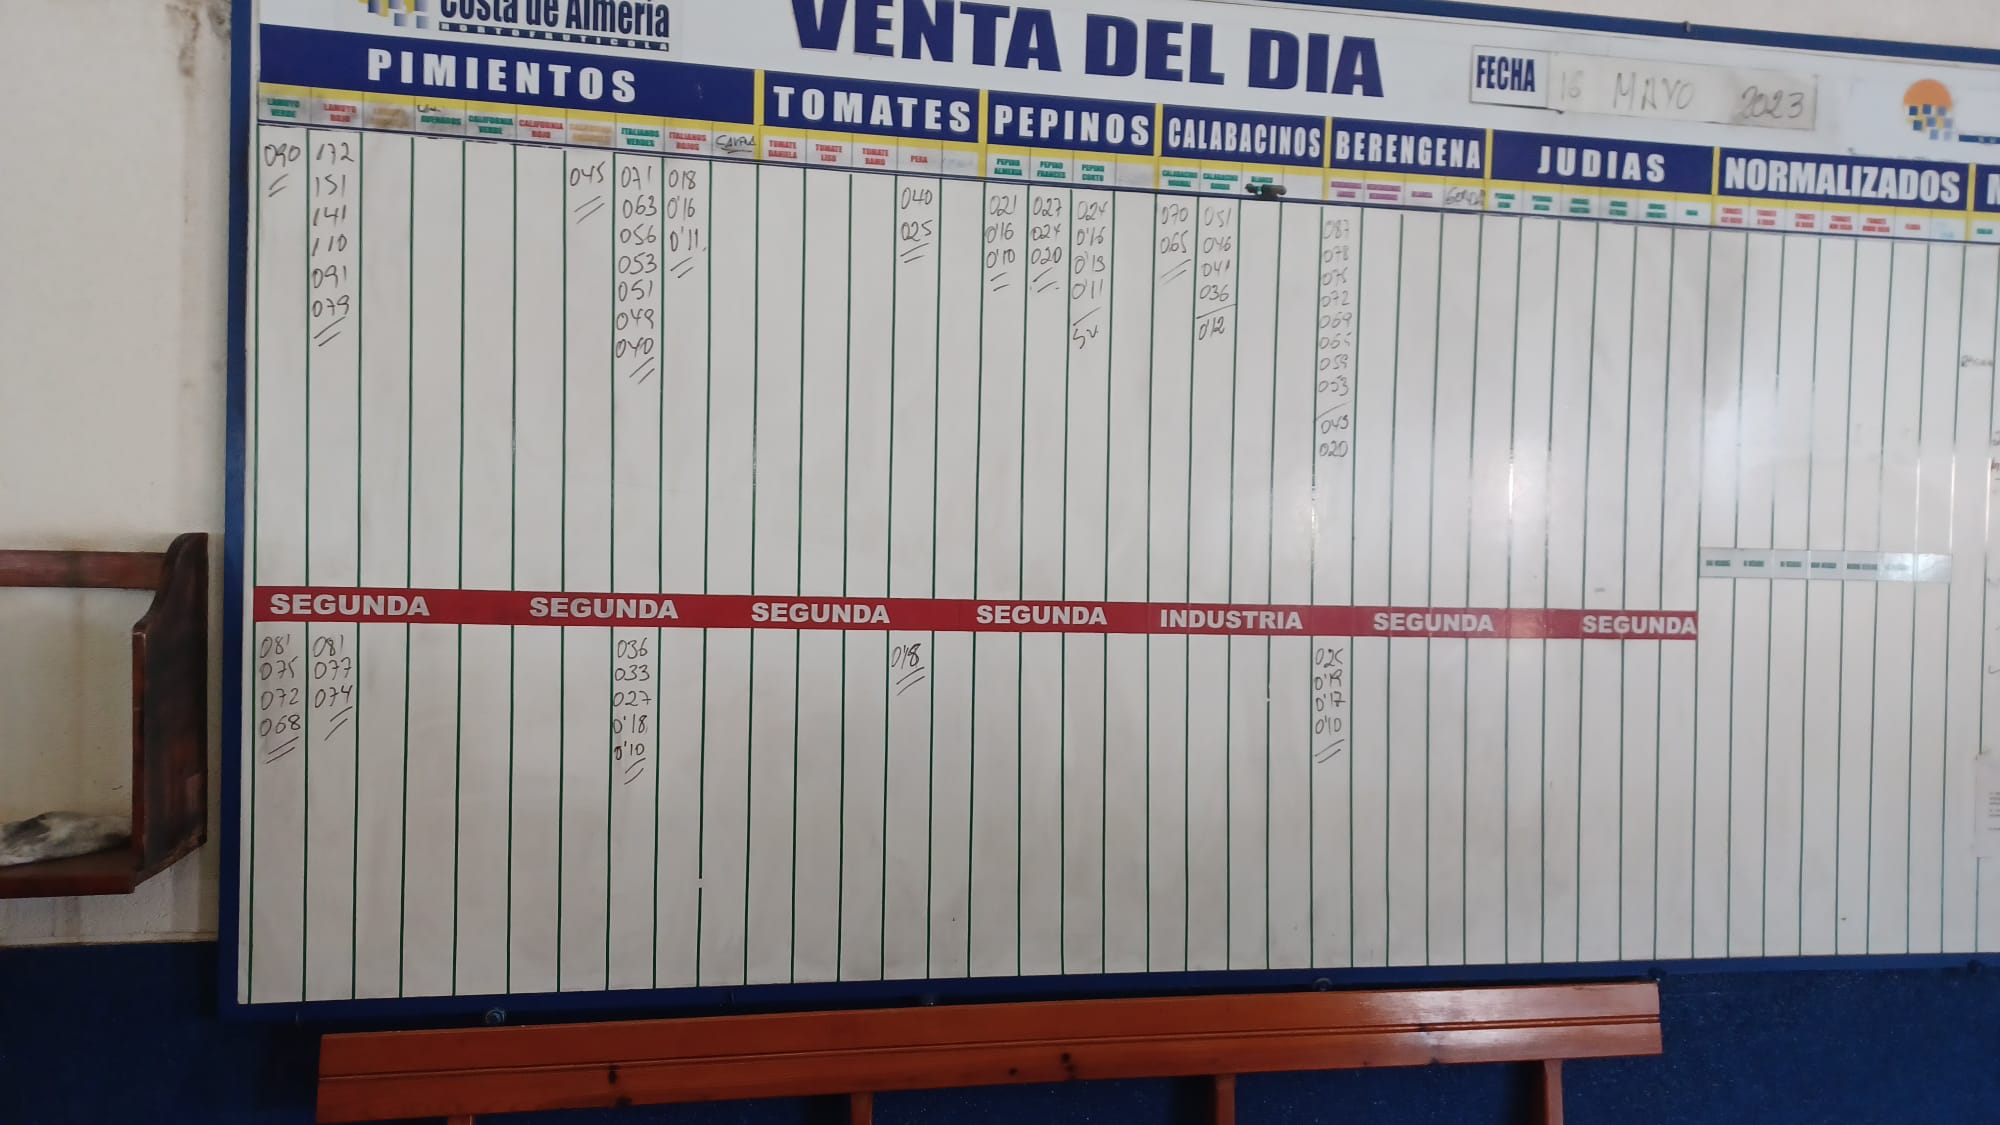 Costa de Almería
HORTOFRUTICOLA
VENTA DEL DIA
FECHA 16 MAYO 2023
PIMIENTOS
TOMATES
PEPINOS
CALABACINOS
BERENGENA
JUDIAS
NORMALIZADOS
LAMUYO VERDE
LAMUYO ROJO
CALIFORNIA VERDE
CALIFORNIA ROJO
ITALIANOS VERDES
ITALIANOS ROJOS
TOMATE DANIELA
TOMATE LISO
TOMATE RAMO
PERA
PEPINO ALMERIA
PEPINO FRANCES
PEPINO CORTO
CALABACINO NORMAL
CALABACINO GORDO
BLANCO
090
172
151
141
110
091
079
045
071
063
056
053
051
049
040
018
0'16
0'11
040
025
021
0'16
0'10
027
024
020
024
0'16
0'13
0'11
070
065
051
046
041
036
0'12
087
078
075
072
069
065
059
053
049
020
SEGUNDA
SEGUNDA
SEGUNDA
SEGUNDA
INDUSTRIA
SEGUNDA
SEGUNDA
081
075
072
068
081
077
074
036
033
027
0'18
0'10
0'18
025
0'19
0'17
0'10